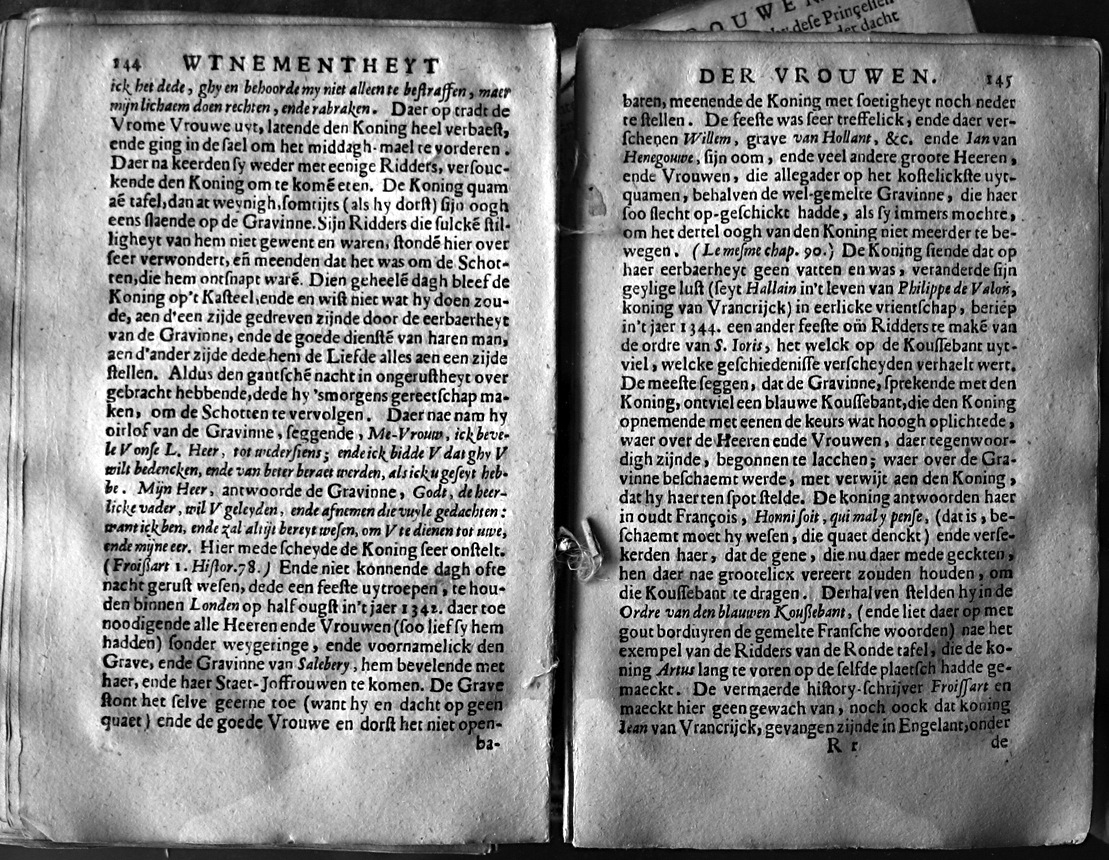 144 WTNEMENTHEYT
ick het dede, ghy en behoorde my niet alleen te bestraffen, maer
mijn lichaem doen rechten, ende rabraken. Daer op tradt de
Vrome Vrouwe uyt, latende den Koning heel verbaest,
ende ging in de sael om het middagh-mael te vorderen.
Daer na keerden sy weder met eenige Ridders, versouc-
kende den Koning om te komē eten. De Koning quam
aē tafel, dan at weynigh, somtijts (als hy dorst) sijn oogh
eens slaende op de Gravinne. Sijn Ridders die sulckē stil-
ligheyt van hem niet gewent en waren, stondē hier over
seer verwondert, eñ meenden dat het was om de Schot-
ten, die hem ontsnapt warē. Dien geheelē dagh bleef de
Koning op't Kasteel, ende en wist niet wat hy doen zou-
de, aen d'een zijde gedreven zijnde door de eerbaerheyt
van de Gravinne, ende de goede dienstē van haren man,
aen d'ander zijde dede hem de Liefde alles aen een zijde
stellen. Aldus den gantschē nacht in ongerustheyt over
gebracht hebbende, dede hy 'smorgens gereetschap ma-
ken, om de Schotten te vervolgen. Daer nae nam hy
oirlof van de Gravinne, seggende, Me-Vrouw, ick beve-
le V onse L. Heer, tot wedersiens; ende ick bidde V dat ghy V
wilt bedencken, ende van beter beraet werden, als ick u geseyt heb-
be. Mijn Heer, antwoorde de Gravinne, Godt, de heer-
licke vader, wil V geleyden, ende afnemen die vuyle gedachten:
want ick ben, ende zal altijt bereyt wesen, om V te dienen tot uwe,
ende mijne eer. Hier mede scheyde de Koning seer onstelt.
(Froissart 1. Histor. 78.) Ende niet konnende dagh ofte
nacht gerust wesen, dede een feeste uytroepen, te hou-
den binnen Londen op half ougst in't jaer 1342. daer toe
noodigende alle Heeren ende Vrouwen (soo lief sy hem
hadden) sonder weygeringe, ende voornamelick den
Grave, ende Gravinne van Salebery, hem bevelende met
haer, ende haer Staet-Joffrouwen te komen. De Grave
stont het selve geerne toe (want hy en dacht op geen
quaet) ende de goede Vrouwe en dorst het niet open-
ba-
DER VROUWEN. 145
baren, meenende de Koning met soetigheyt noch neder
te stellen. De feeste was seer treffelick, ende daer ver-
schenen Willem, grave van Hollant, &c. ende Ian van
Henegouwe, sijn oom, ende veel andere groote Heeren,
ende Vrouwen, die allegader op het kostelickste uyt-
quamen, behalven de wel-gemelte Gravinne, die haer
soo slecht op-geschickt hadde, als sy immers mochte,
om het dertel oogh van den Koning niet meerder te be-
wegen. (Le mesme chap. 90.) De Koning siende dat op
haer eerbaerheyt geen vatten en was, veranderde sijn
geylige lust (seyt Hallain in't leven van Philippe de Valois,
koning van Vrancrijck) in eerlicke vrientschap, beriep
in't jaer 1344. een ander feeste om Ridders te makē van
de ordre van S. Ioris, het welck op de Koussebant uyt-
viel, welcke geschiedenisse verscheyden verhaelt wert.
De meeste seggen, dat de Gravinne, sprekende met den
Koning, ontviel een blauwe Koussebant, die den Koning
opnemende met eenen de keurs wat hoogh oplichtede,
waer over de Heeren ende Vrouwen, daer tegenwoor-
digh zijnde, begonnen te lacchen; waer over de Gra-
vinne beschaemt werde, met verwijt aen den Koning,
dat hy haer ten spot stelde. De koning antwoorden haer
in oudt François, Honni soit, qui mal y pense, (dat is, be-
schaemt moet hy wesen, die quaet denckt) ende verse-
kerden haer, dat de gene, die nu daer mede geckten,
hen daer nae grootelicx vereert zouden houden, om
die Koussebant te dragen. Derhalven stelden hy in de
Ordre van den blauwen Koussebant, (ende liet daer op met
gout borduyren de gemelte Fransche woorden) nae het
exempel van de Ridders van de Ronde tafel, die de ko-
ning Artus lang te voren op de selfde plaetsch hadde ge-
maeckt. De vermaerde history-schrijver Froissart en
maeckt hier geen gewach van, noch oock dat koning
Iean van Vrancrijck, gevangen zijnde in Engelant, onder
R r de
ROUWEN
dese Princessen
der dacht